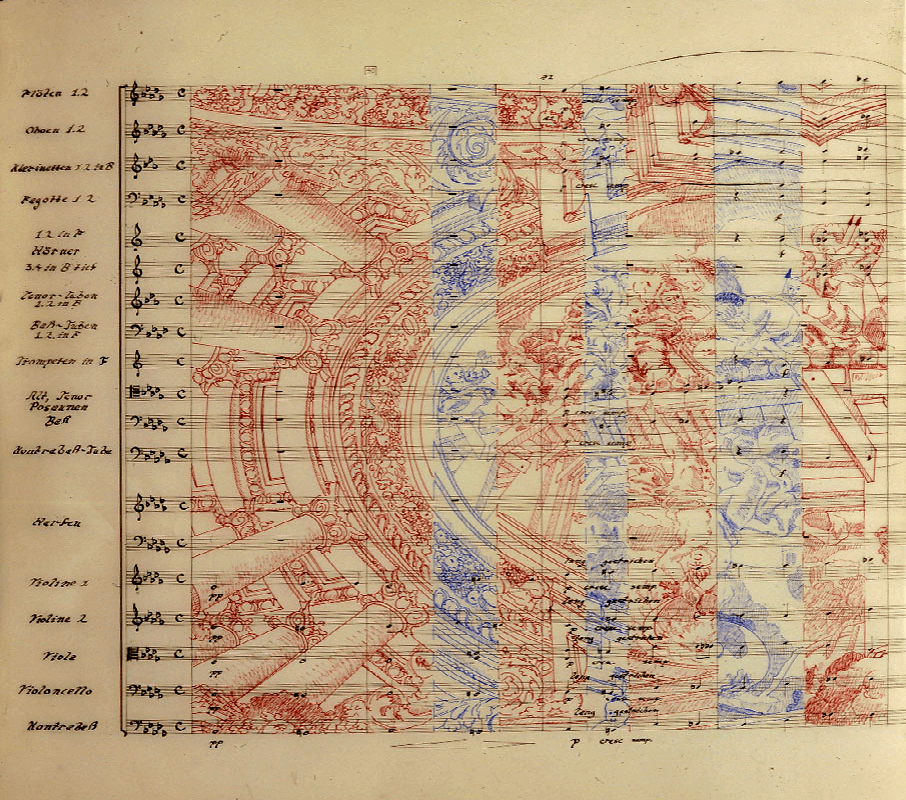 a2
Flöten 1.2
Oboen 1.2
Klarinetten 1.2 in B
Fagotte 1.2
1.2 in F
Hörner
3.4 in B tief
Tenor-Tuben
1.2 in B
Baß-Tuben
1.2 in F
Trompeten in F
Alt, Tenor
Posaunen
Baß
Kontrabaß-Tuba
Harfen
Violine 1
Violine 2
Viola
Violoncello
Kontrabaß
cresc semp.
p cresc semp.
p cresc semp.
lang gestrichen
pp
p cresc semp.
lang gestrichen
pp
p cresc semp.
lang gestrichen
pp
p cresc semp.
lang gestrichen
pp
p cresc semp.
lang gestrichen
pp
p cresc semp.